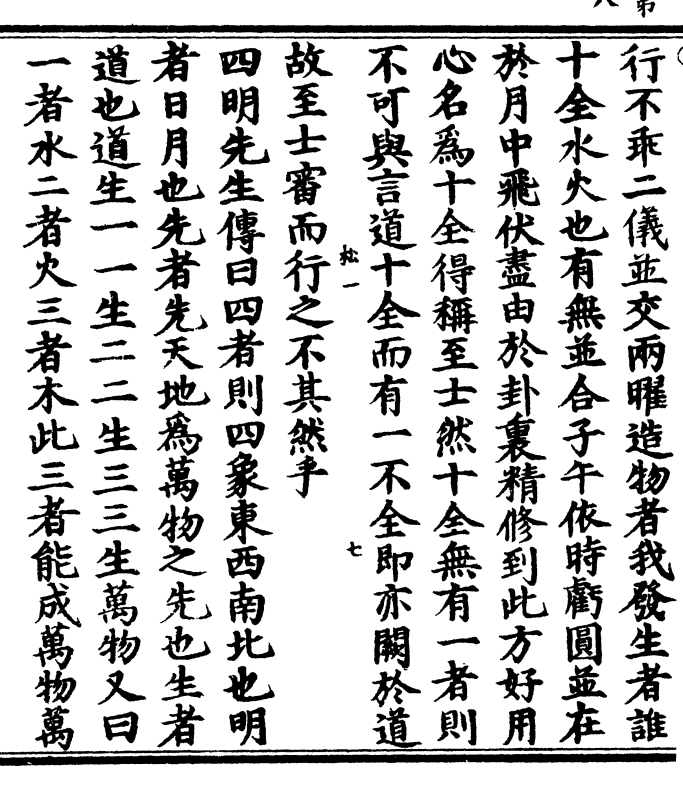 第
行不乖二儀並交兩曜造物者我發生者誰
十全水火也有無並合子午依時虧圓並在
於月中飛伏盡由於卦裏精修到此方好用
心名爲十全得稱至士然十全無有一者則
不可與言道十全而有一不全即亦闕於道
松一
七
故至士審而行之不其然乎
四明先生傳曰四者則四象東西南北也明
者日月也先者先天地爲萬物之先也生者
道也道生一一生二二生三三生萬物又曰
一者水二者火三者木此三者能成萬物萬